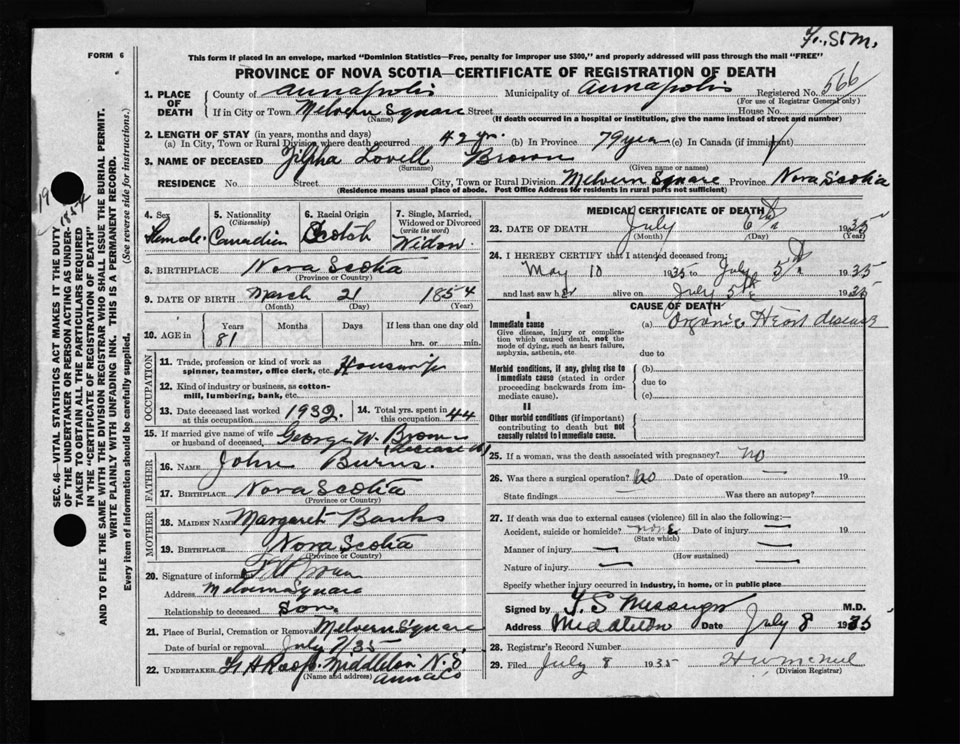 St. M.
FORM 6
This form if placed in an envelope, marked "Dominion Statistics—Free, penalty for improper use $300," and properly addressed will pass through the mail "FREE"
PROVINCE OF NOVA SCOTIA—CERTIFICATE OF REGISTRATION OF DEATH
1. PLACE OF DEATH
County of Annapolis Municipality of Annapolis Registered No. 566
(For use of Registrar General only)
If in City or Town Melvern Square Street House No.
(Name) (If death occurred in a hospital or institution, give the name instead of street and number)
2. LENGTH OF STAY (in years, months and days)
(a) In City, Town or Rural Division where death occurred 42 yr. (b) In Province 79 year (c) In Canada (if immigrant)
3. NAME OF DECEASED Zilpha Lovell Brown
(Surname) (Given name or names)
RESIDENCE No. Street City, Town or Rural Division Melvern Square Province Nova Scotia
(Residence means usual place of abode. Post Office Address for residents in rural parts not sufficient)
4. Sex Female
5. Nationality (Citizenship) Canadian
6. Racial Origin Scotch
7. Single, Married, Widowed or Divorced (write the word) Widow
8. BIRTHPLACE Nova Scotia
(Province or Country)
9. DATE OF BIRTH March 21 1854
(Month) (Day) (Year)
10. AGE in Years Months Days If less than one day old
81 hrs. or min.
OCCUPATION
11. Trade, profession or kind of work as spinner, teamster, office clerk, etc. Housewife
12. Kind of industry or business, as cotton-mill, lumbering, bank, etc.
13. Date deceased last worked at this occupation 1932.
14. Total yrs. spent in this occupation 44
15. If married give name of wife or husband of deceased, George W. Brown (deceased)
FATHER
16. NAME John Burns.
17. BIRTHPLACE Nova Scotia
(Province or Country)
MOTHER
18. MAIDEN NAME Margaret Banks
19. BIRTHPLACE Nova Scotia
(Province or Country)
20. Signature of informant
Address Melvern Square
Relationship to deceased Son.
21. Place of Burial, Cremation or Removal Melvern Square
Date of burial or removal July 7/35
22. UNDERTAKER Middleton N.S.
(Name and address) Anna Co
MEDICAL CERTIFICATE OF DEATH
23. DATE OF DEATH July 6th 1935
(Month) (Day) (Year)
24. I HEREBY CERTIFY that I attended deceased from:
May 10 1935 to July 5th 1935
and last saw her alive on July 5th 1935
CAUSE OF DEATH
I
Immediate cause (a) Organic Heart disease
Give disease, injury or complication which caused death, not the mode of dying, such as heart failure, asphyxia, asthenia, etc
due to
Morbid conditions, if any, giving rise to immediate cause (stated in order proceeding backwards from immediate cause).
(b)
due to
(c)
II
Other morbid conditions (if important) contributing to death but not causally related to immediate cause.
25. If a woman, was the death associated with pregnancy? no
26. Was there a surgical operation? no Date of operation 19
State findings Was there an autopsy?
27. If death was due to external causes (violence) fill in also the following:
Accident, suicide or homicide? none Date of injury 19
(State which)
Manner of injury
(How sustained)
Nature of injury
Specify whether injury occurred in industry, in home, or in public place
Signed by M.D.
Address Middleton Date July 8 1935
28. Registrar's Record Number
29. Filed July 8 1935
(Division Registrar)
SEC. 46—VITAL STATISTICS ACT MAKES IT THE DUTY
OF THE UNDERTAKER OR PERSON ACTING AS UNDER-
TAKER TO OBTAIN ALL THE PARTICULARS REQUIRED
IN THE "CERTIFICATE OF REGISTRATION OF DEATH"
AND TO FILE THE SAME WITH THE DIVISION REGISTRAR WHO SHALL ISSUE THE BURIAL PERMIT.
WRITE PLAINLY WITH UNFADING INK. THIS IS A PERMANENT RECORD.
Every item of information should be carefully supplied. (See reverse side for instructions.)
19
1854